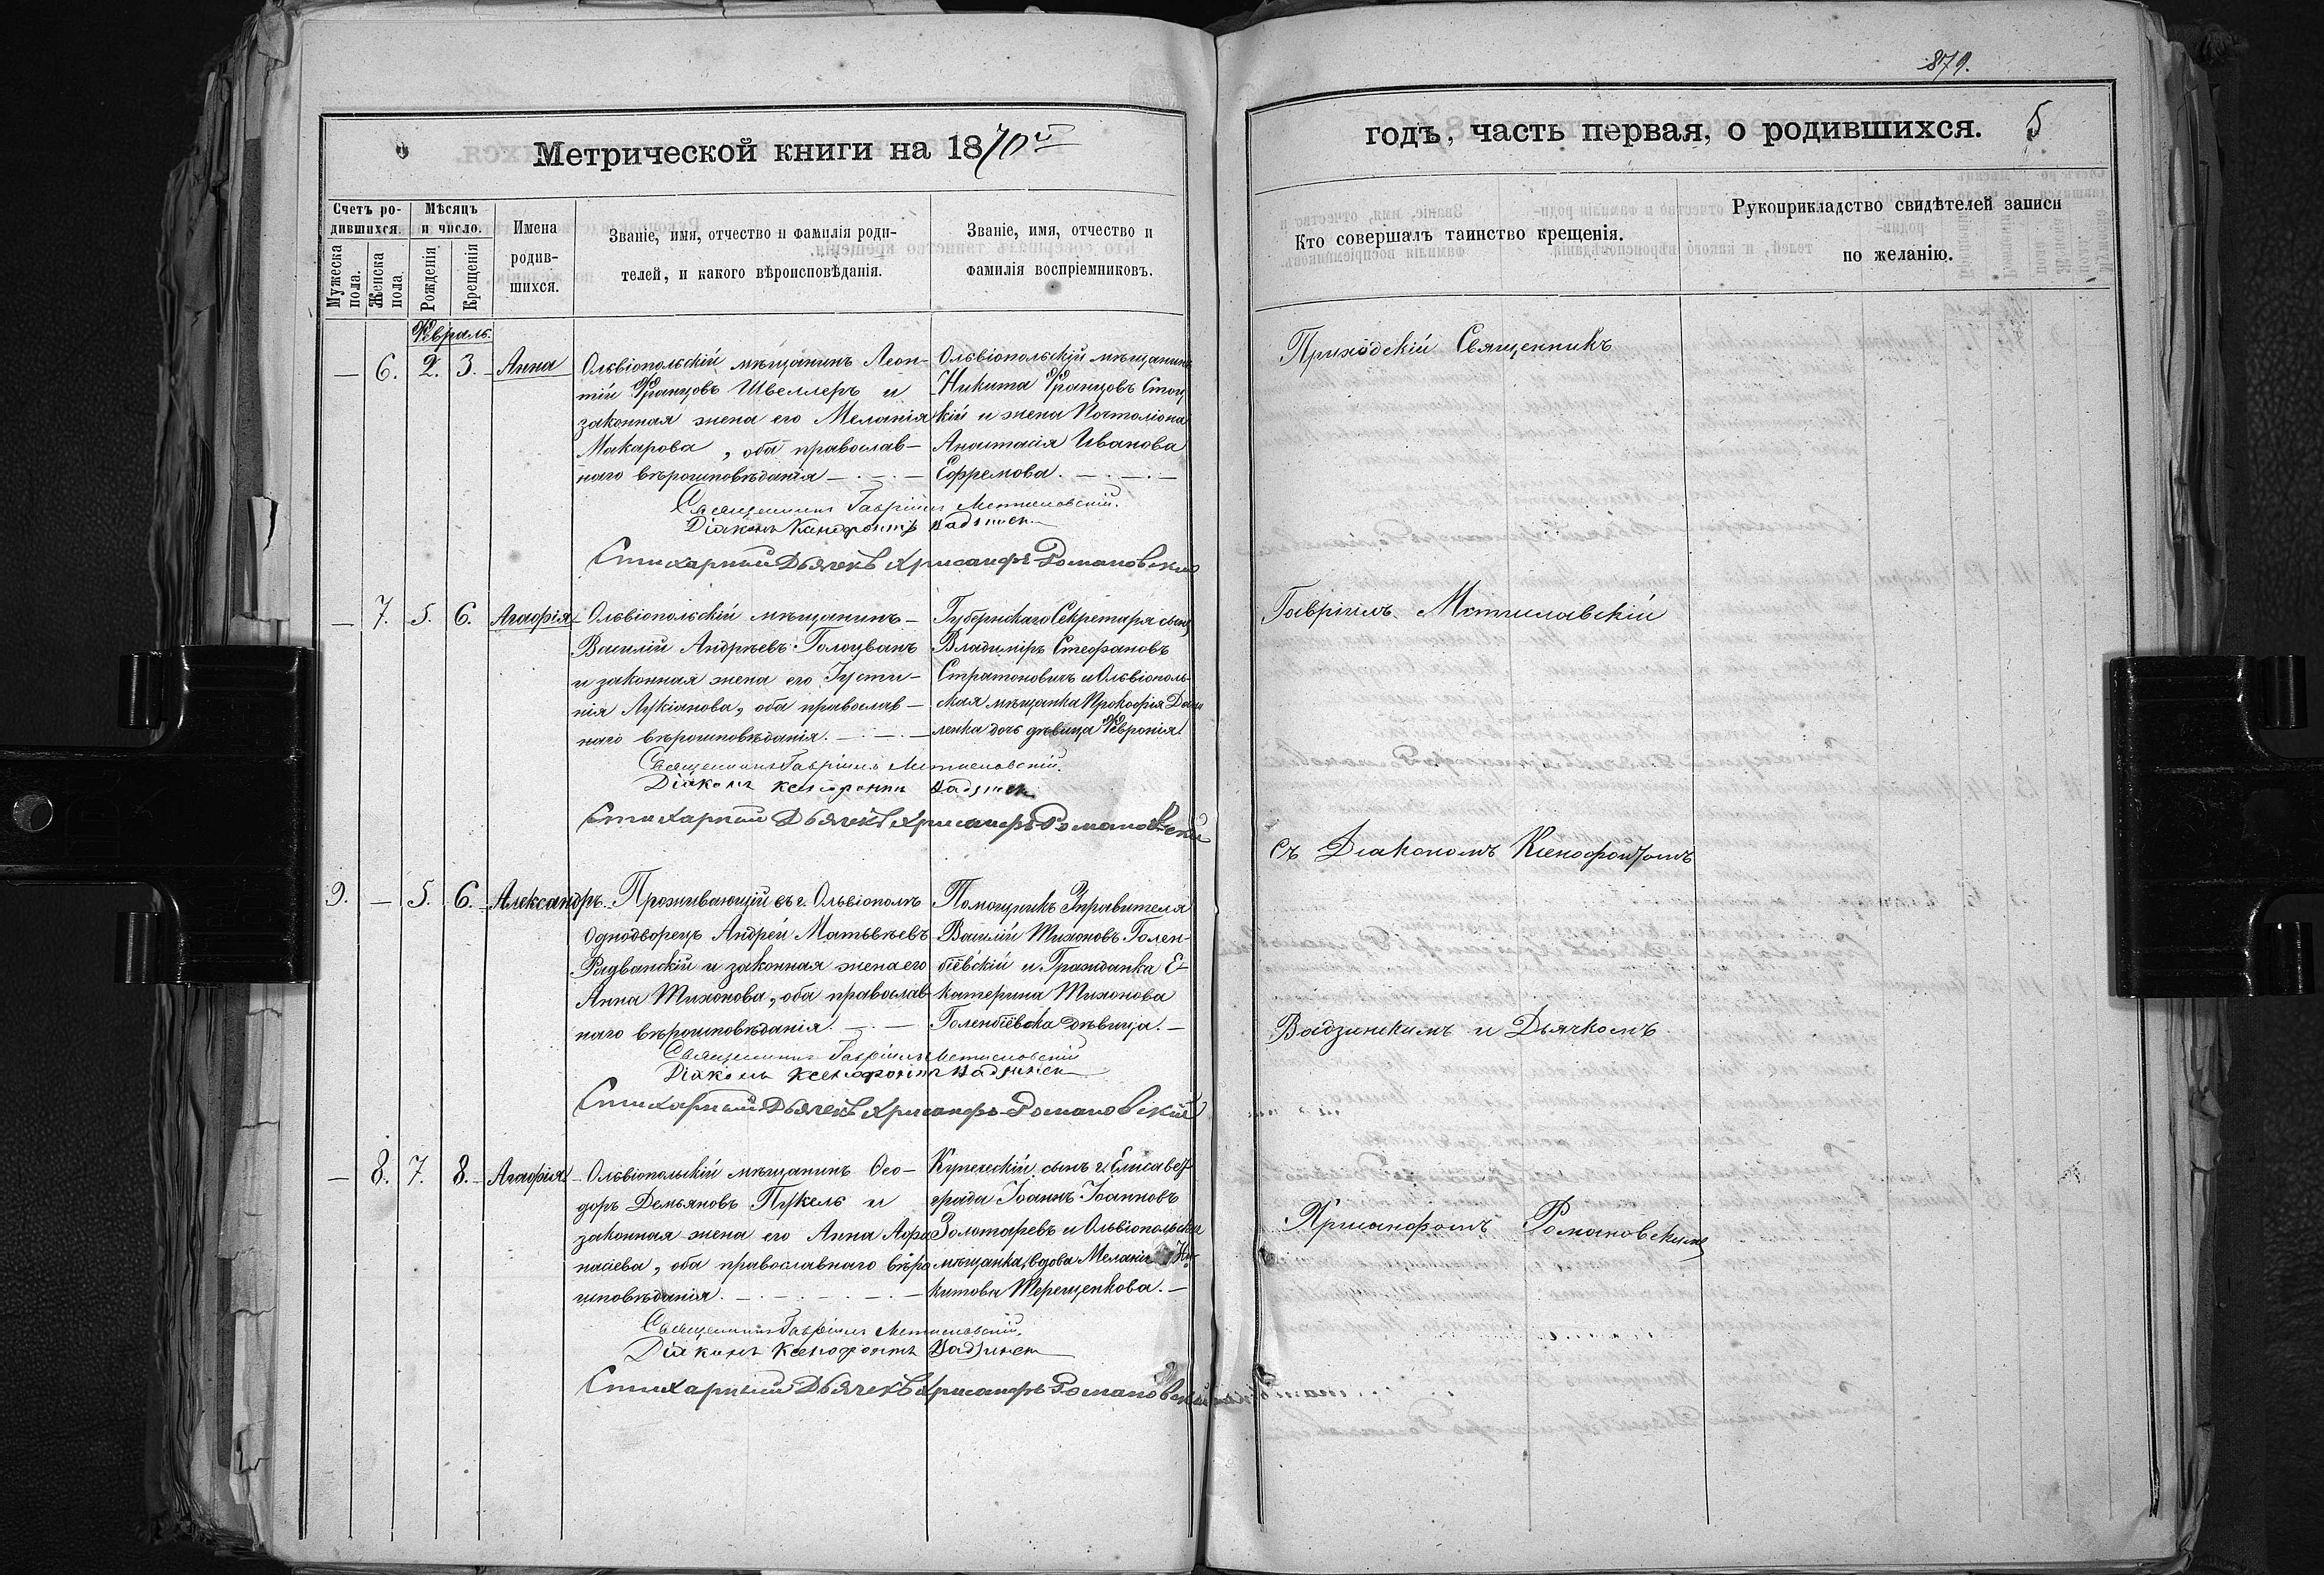 879.
Метрической книги на 1870й
годъ, часть первая, о родившихся. 5
Счетъ ро-
дившихся.
Мужеска пола.
Женска пола.
Мѣсяцъ
и число.
Рожденія
Крещенія
Имена
родив-
шихся.
Званіе, имя, отчество и фамилія роди-
телей, и какого вѣроисповѣданія.
Званіе, имя, отчество и
фамилія воспріемниковъ.
Кто совершалъ таинство крещенія.
Рукоприкладство свидѣтелей записи
по желанію.
Февраль.
— 6. 2. 3. Анна
Ольвіопольскій мѣщанинъ Леон-
тій Францовъ Швеллеръ и
законная жена его Меланія
Макарова, оба православ-
наго вѣроисповѣданія
Ольвіопольскій мѣщанинъ
Никита Францовъ
и жена Почталіона
Анастасія Иванова
Ефремова.
Священникъ Гавріилъ Мстиславскій.
Діаконъ Ксенофонтъ
Стихарный Дьячекъ Хрисанфъ Романовскій
— 7. 5. 6. Агафія
Ольвіопольскій мѣщанинъ
Василій Андрѣевъ Голоцванъ
и законная жена его Густи-
нія Лукіанова, оба православ-
наго вѣроисповѣданія.
Губернскаго Секретаря сынъ
Владиміръ Стефановъ
Стратоновичъ и Ольвіополь-
ская мѣщанка Прокофія
ленка дочь дѣвица Февронія
Священникъ Гавріилъ Мстиславскій.
Діаконъ Ксенофонтъ
Стихарный Дьячекъ Хрисанфъ Романовскій
9. — 5. 6. Александръ.
Проживающій въ г. Ольвіополѣ
Однодворецъ Андрей Матьвѣевъ
Радванскій и законная жена его
Анна Тихонова, оба православ-
наго вѣроисповѣданія.
Помощникъ Управителя
Василій Тихоновъ Голен-
біевскій и Гражданка Е-
катерина Тихонова
Голенбіевска дѣвица.
Священникъ Гавріилъ Мстиславскій
Діаконъ Ксенофонтъ
Стихарный Дьячекъ Хрисанфъ Романовскій
— 8. 7. 8. Агафія
Ольвіопольскій мѣщанинъ Ѳео-
доръ Демьяновъ Пукель и
законная жена его Анна Афа-
насіева, оба православнаго вѣро
исповѣданія.
Купеческій сынъ г. Елисавет-
града Іоаннъ Іоанновъ
Золотаревъ и Ольвіопольская
мѣщанка, вдова Меланія Ни-
китова Терещенкова.
Священникъ Гавріилъ Мстиславскій.
Діаконъ Ксенофонтъ
Стихарный Дьячекъ Хрисанфъ Романовскій
Приходскій Священникъ
Гавріилъ Мстиславскій
съ Діакономъ Ксенофонтомъ
Вадзинскимъ и Дьячкомъ
Хрисанфомъ Романовскимъ